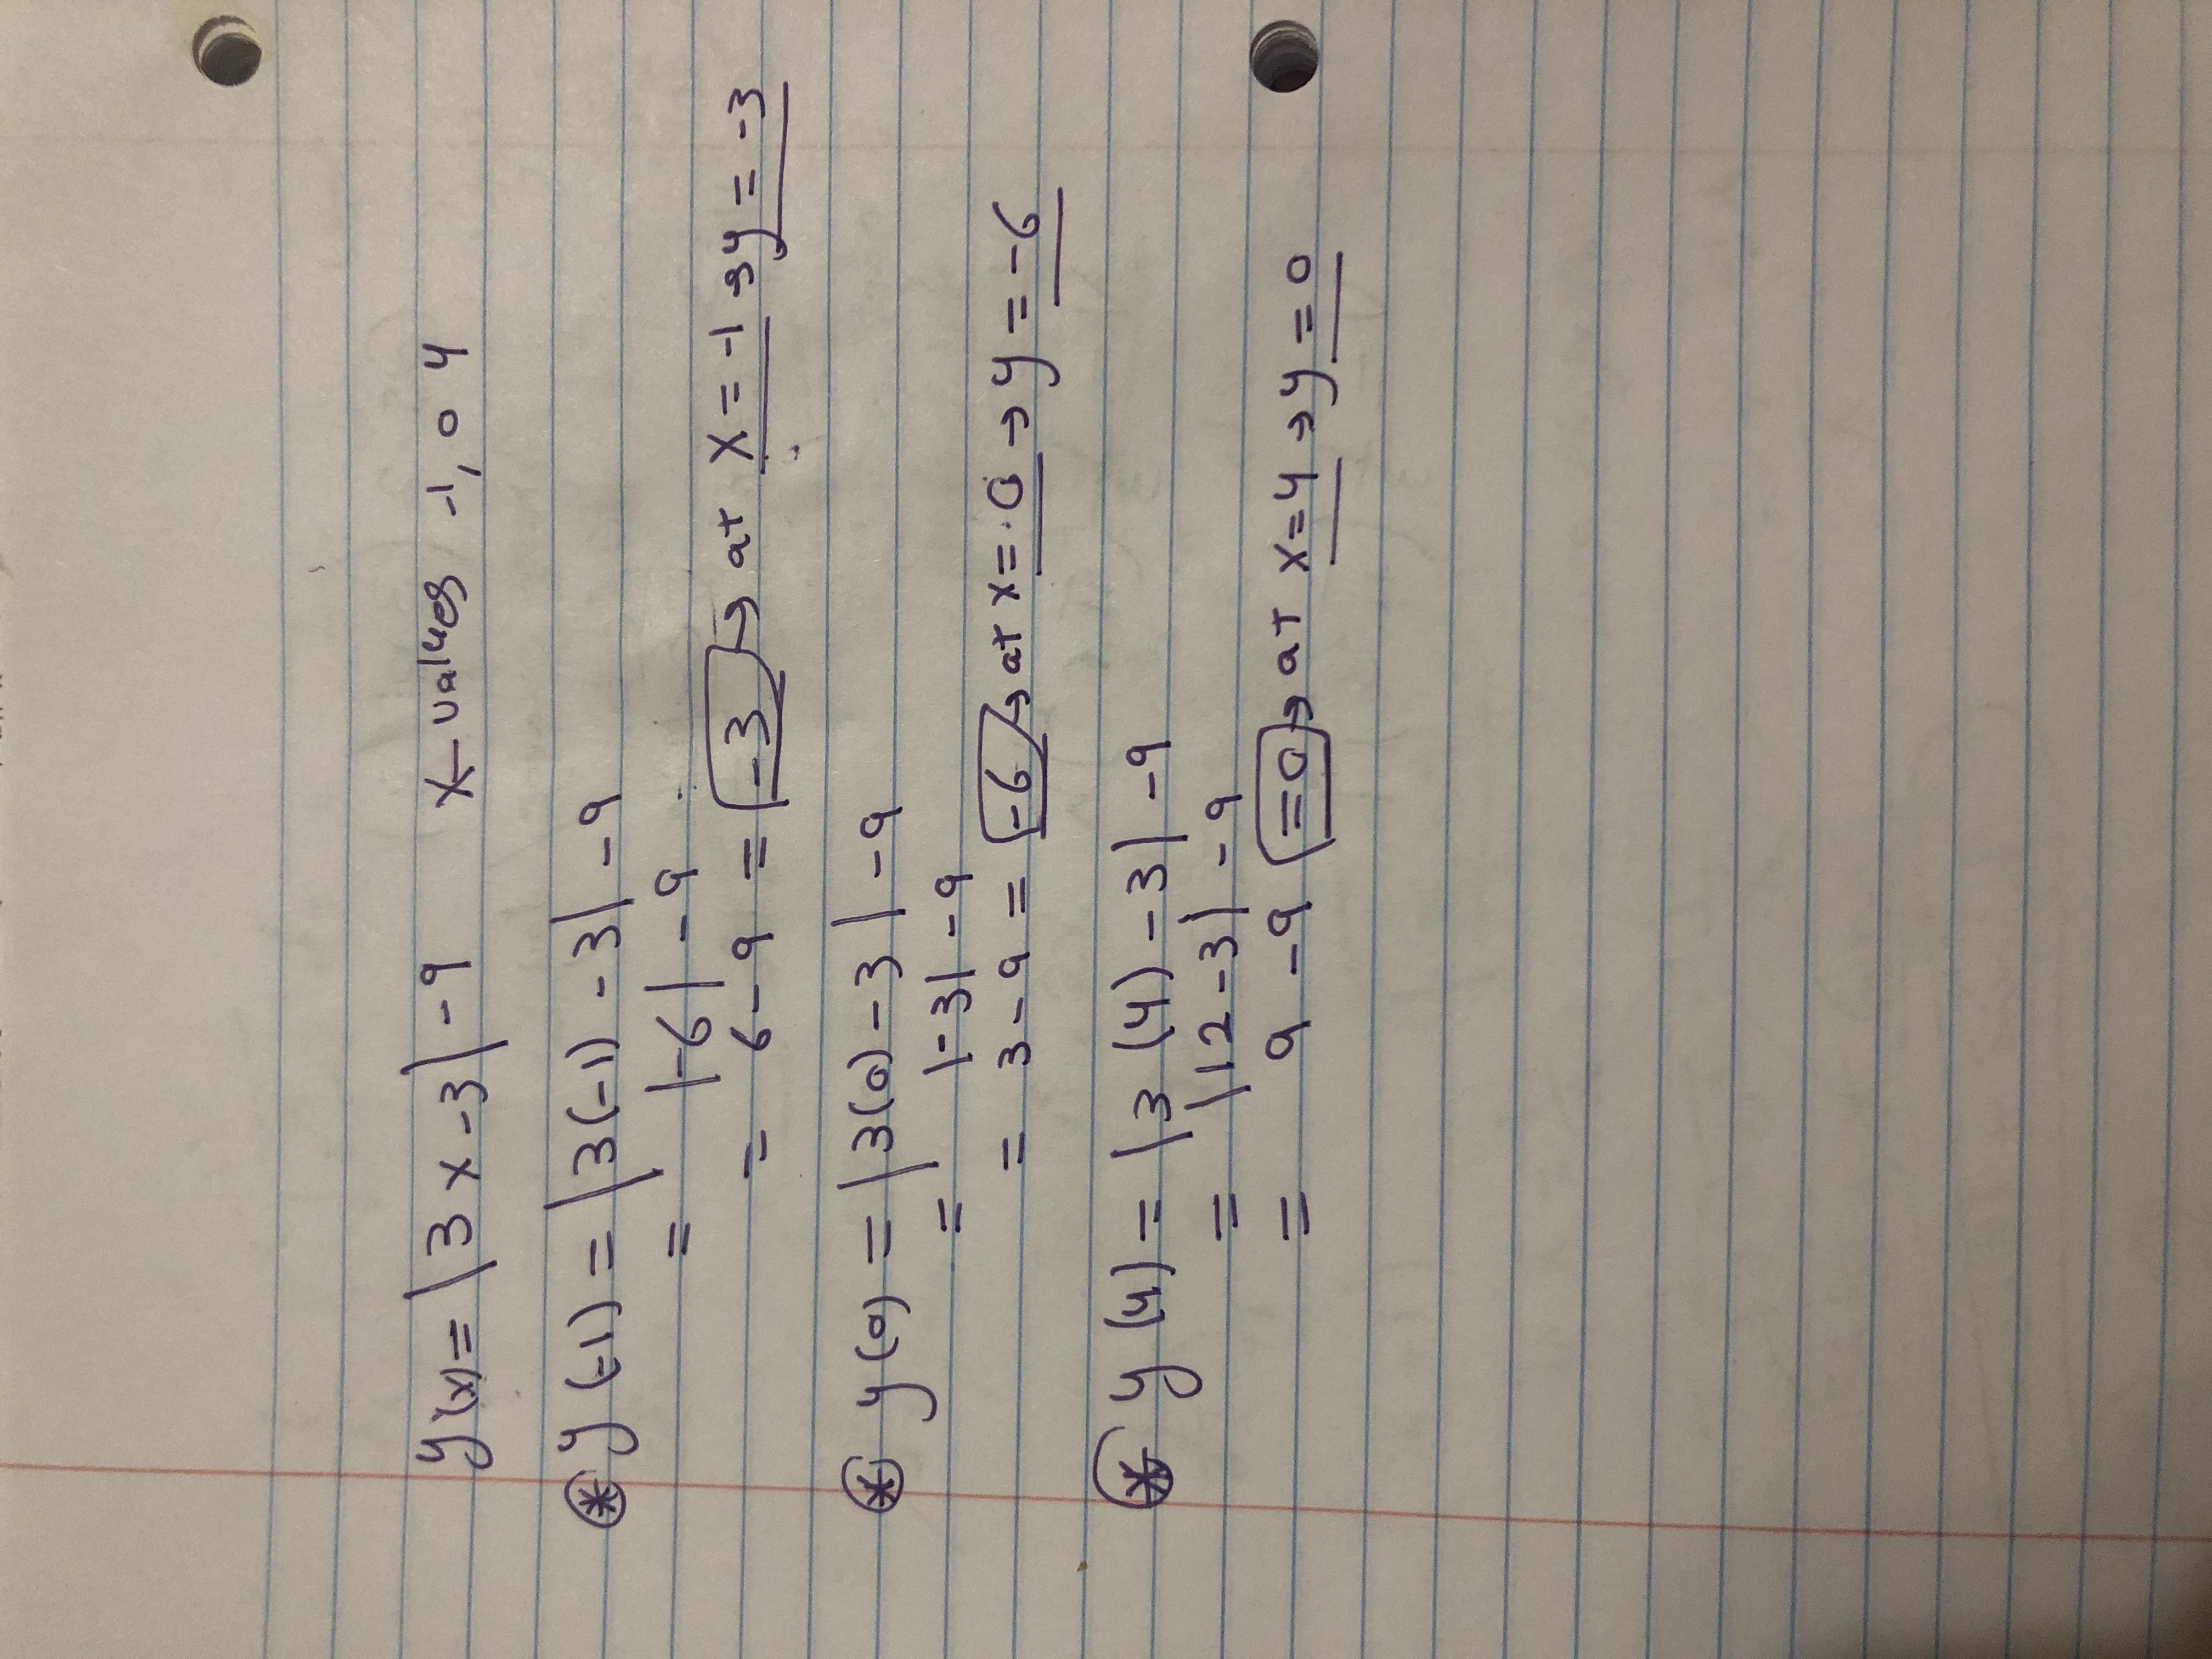 y(x) = |3x-3| -9 x-values -1, 0 4
* y(-1) = |3(-1) -3| -9
= |-6| -9
= 6-9 = -3 → at x=-1 → y = -3
* y(0) = |3(0) -3| -9
= |-3| -9
= 3-9 = -6 → at x=0 → y = -6
* y(4) = |3(4) -3| -9
= |12-3| -9
= 9 -9 =0 → at x=4 → y=0